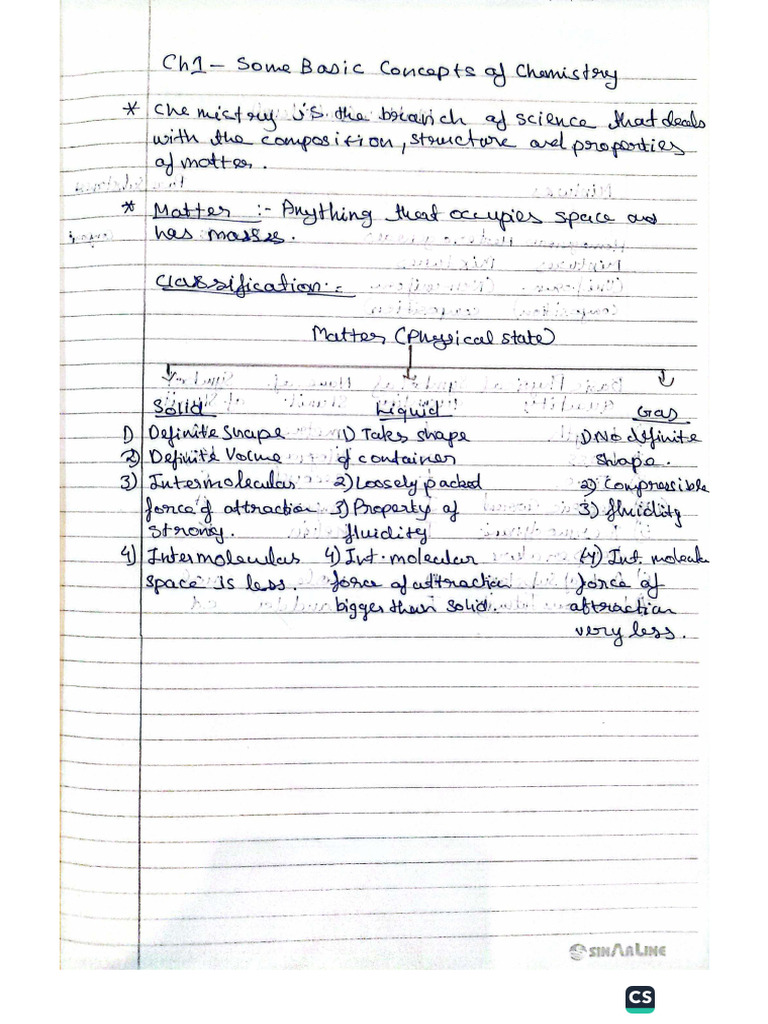 Ch1 - Some Basic Concepts of Chemistry
* Chemistry is the branch of science that deals
with the composition, structure and properties
of matter.
* Matter :- Anything that occupies space and
has masses.
Classification :-
Matter (Physical state)
Solid
1) Definite Shape
2) Definite Volume
3) Intermolecular
force of attraction
strong.
4) Intermolecular
space is less.
Liquid
1) Takes shape
of container
2) Loosely packed
3) Property of
fluidity
4) Int. molecular
force of attraction
bigger than solid.
Gas
1) No definite
shape.
2) Compressible
3) fluidity
(4) Int. molecule
force of
attraction
very less.
SINARLINE
CS